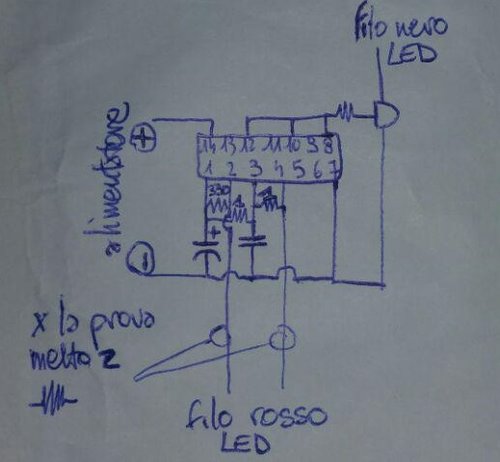 filo nero
LED
alimentatore
+
14 13 12 11 10 9 8
1 2 3 4 5 6 7
330
1
+
-
x la prova
metto 2
filo rosso
LED